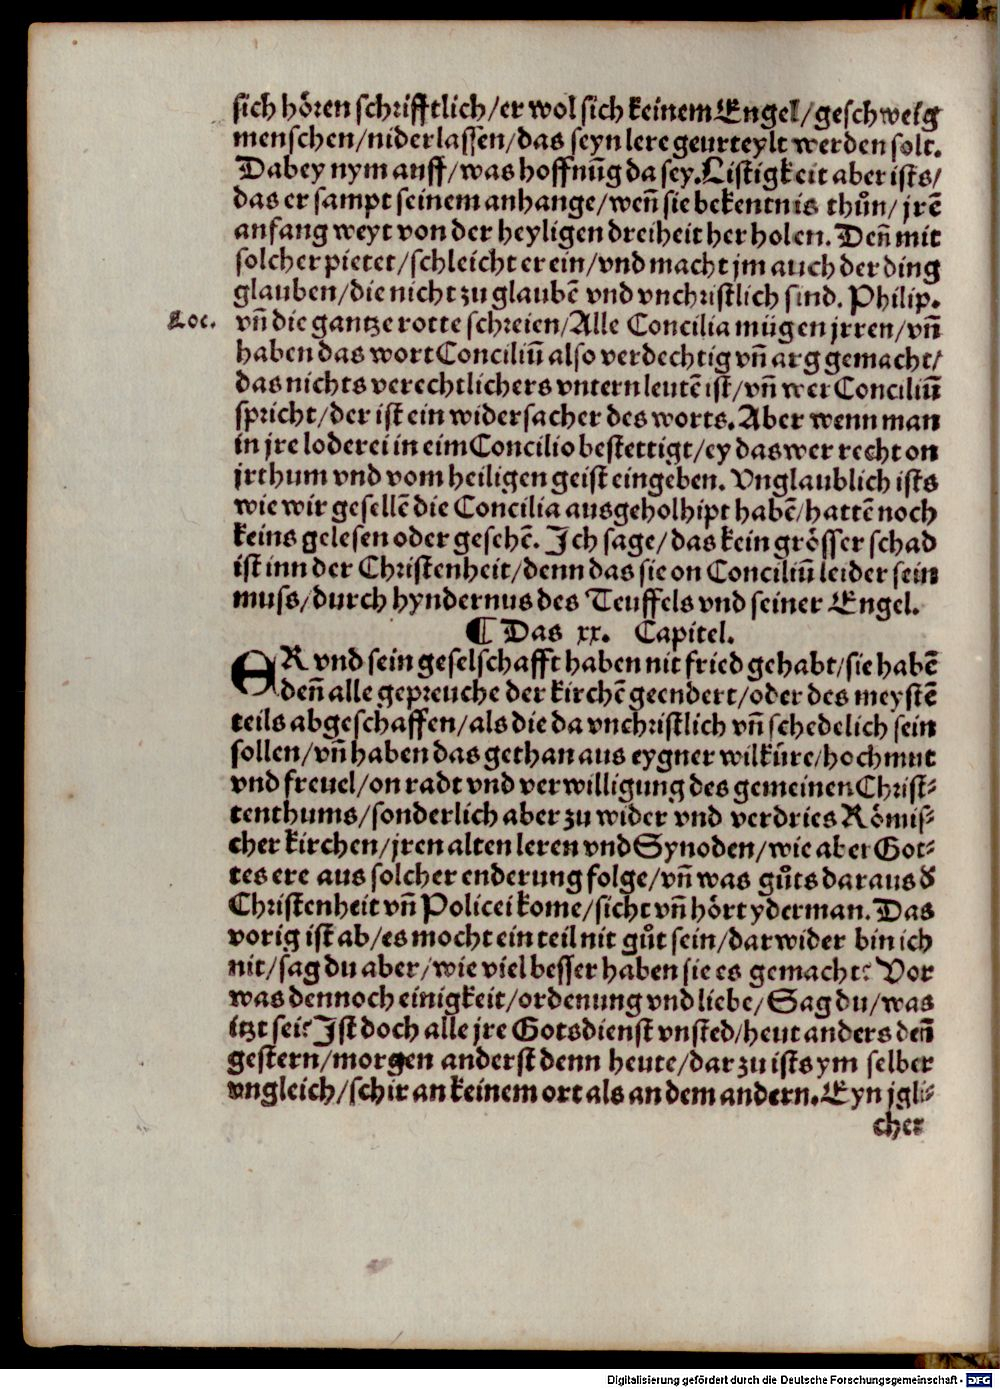 sich hören schrifftlich/er wol sich keinem Engel/geschweig
menschen/niderlassen/das seyn lere geurteylt werden solt.
Dabey nym auff/was hoffnūg da sey. Listigkeit aber ists/
das er sampt seinem anhange/weñ sie bekentnis thůn/jrē
anfang weyt von der heyligen dreiheit her holen. Deñ mit
solcher pietet/schleicht er ein/vnd macht jm auch der ding
glauben/die nicht zu glaubē vnd vnchristlich sind. Philip.
Loc. vñ die gantze rotte schreien/Alle Concilia mügen jrren/vñ
haben das wort Conciliū also verdechtig vñ arg gemacht/
das nichts verechtlichers vntern leutē ist/vñ wer Conciliū
spricht/der ist ein widersacher des worts. Aber wenn man
in jre loderei in eim Concilio bestettigt/ey das wer recht on
jrthum vnd vom heiligen geist eingeben. Vnglaublich ists
wie wir gesellē die Concilia ausgeholhipt habē/hattē noch
keins gelesen oder gesehē. Ich sage/das kein grösser schad
ist inn der Christenheit/denn das sie on Conciliū leider sein
muss/durch hyndernus des Teuffels vnd seiner Engel.
¶ Das xx. Capitel.
ER vnd sein geselschafft haben nit fried gehabt/sie habē
deñ alle gepreuche der kirchē geendert/oder des meystē
teils abgeschaffen/als die da vnchristlich vñ schedelich sein
sollen/vñ haben das gethan aus eygner wilküre/hochmut
vnd freuel/on radt vnd verwilligung des gemeinen Christ⸗
tenthums/sonderlich aber zu wider vnd verdries Römis⸗
cher kirchen/jren alten leren vnd Synoden/wie aber Got⸗
tes ere aus solcher enderung folge/vñ was gůts daraus d̕
Christenheit vñ Policei kome/sicht vñ hört yderman. Das
vorig ist ab/es mocht ein teil nit gůt sein/darwider bin ich
nit/sag du aber/wie viel besser haben sie es gemacht? Vor
was dennoch einigkeit/ordenung vnd liebe/Sag du/was
itzt sei? Ist doch alle jre Gotsdienst vnsted/heut anders deñ
gestern/morgen anderst denn heute/darzu ists ym selber
vngleich/schir an keinem ort als an dem andern. Eyn jgli⸗
cher
Digitalisierung gefördert durch die Deutsche Forschungsgemeinschaft - DFG